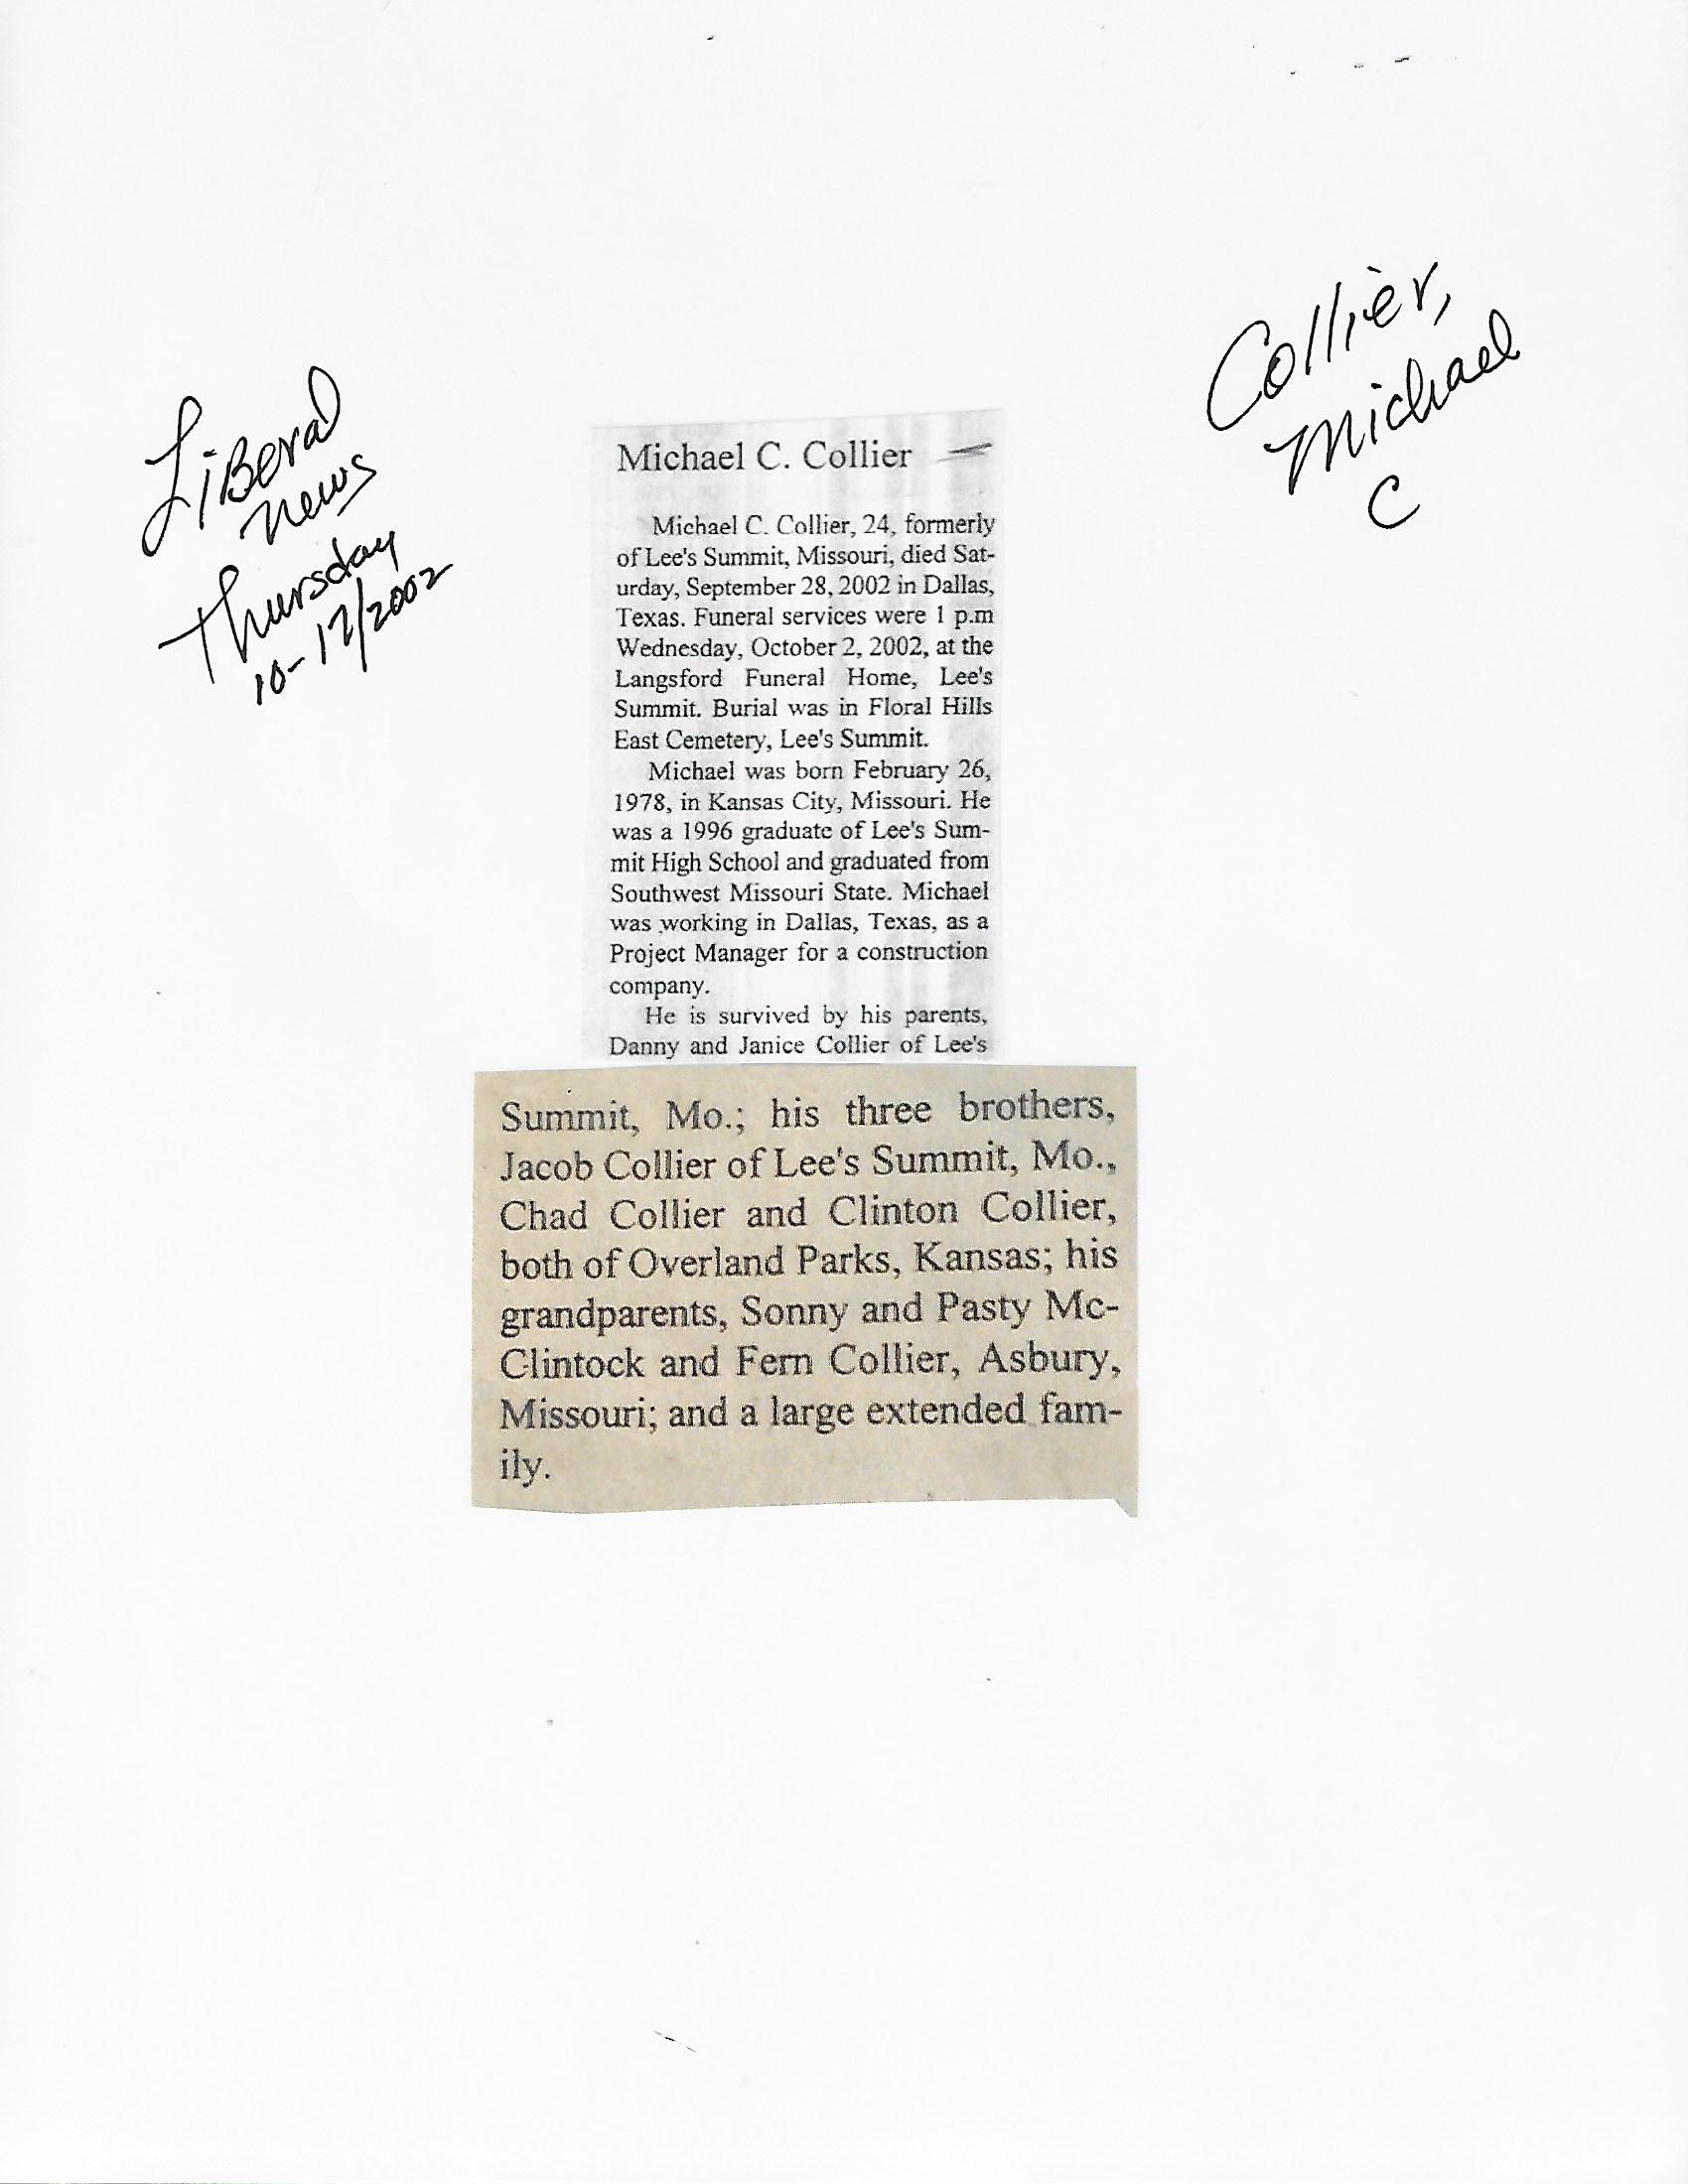 Collier,
Michael
C
Liberal
News
Thursday
10-17/2002
Michael C. Collier
Michael C. Collier, 24, formerly
of Lee's Summit, Missouri, died Sat-
urday, September 28, 2002 in Dallas,
Texas. Funeral services were 1 p.m
Wednesday, October 2, 2002, at the
Langsford Funeral Home, Lee's
Summit. Burial was in Floral Hills
East Cemetery, Lee's Summit.
Michael was born February 26,
1978, in Kansas City, Missouri. He
was a 1996 graduate of Lee's Sum-
mit High School and graduated from
Southwest Missouri State. Michael
was working in Dallas, Texas, as a
Project Manager for a construction
company.
He is survived by his parents,
Danny and Janice Collier of Lee's
Summit, Mo.; his three brothers,
Jacob Collier of Lee's Summit, Mo.,
Chad Collier and Clinton Collier,
both of Overland Parks, Kansas; his
grandparents, Sonny and Pasty Mc-
Clintock and Fern Collier, Asbury,
Missouri; and a large extended fam-
ily.